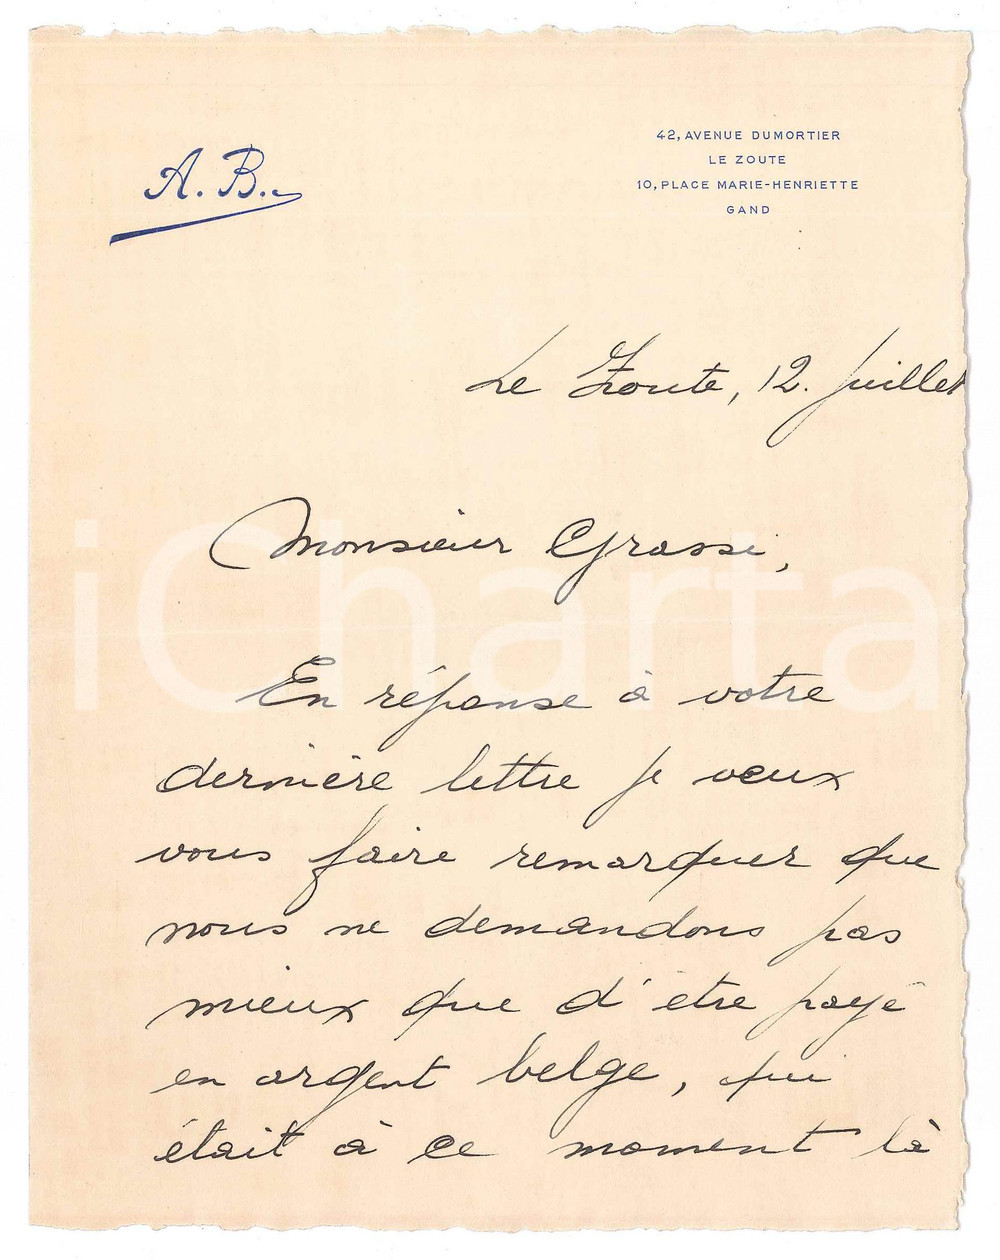 A. B.
42, AVENUE DUMORTIER
LE ZOUTE
10, PLACE MARIE-HENRIETTE
GAND
Le Zoute, 12. juillet
Monsieur Grassi,
iCharta
En réponse à votre
dernière lettre je veux
vous faire remarquer que
nous ne demandons pas
mieux que d'être payé
en argent belge, qui
était à ce moment là